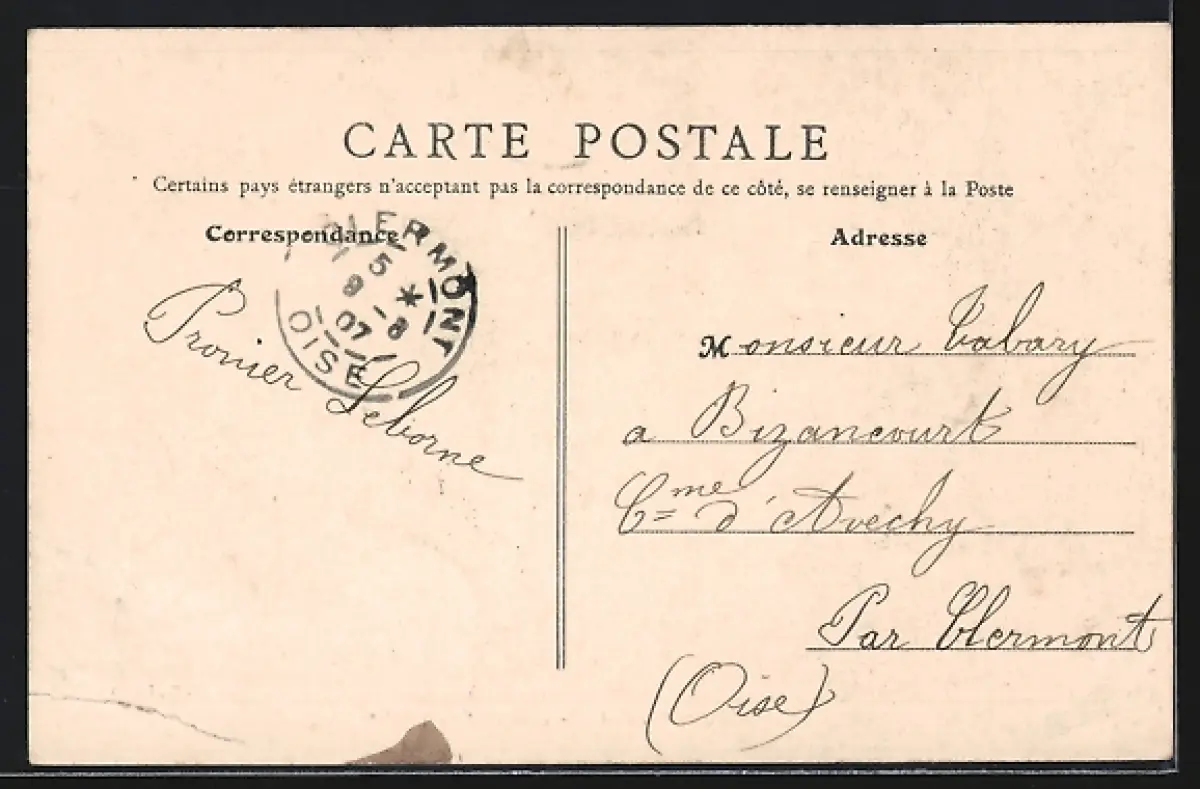 CARTE POSTALE
Certains pays étrangers n'acceptant pas la correspondance de ce côté, se renseigner à la Poste
Correspondance
Adresse
CLERMONT
5 *
9 - 8
07
OISE
Pronier Leborne
Monsieur Tabary
a Bizancourt
Cme d'Avechy
Par Clermont
(Oise)